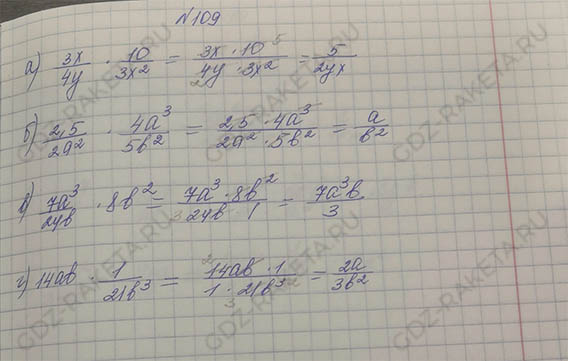 №109
а) 3x/4y · 10/3x² = 3x · 10 5/4y 2 · 3x² = 5/2yx
б) 2,5/2a² · 4a³/5b² = 2,5 · 4a³/2a² · 5b² = a/b²
в) 7a³/24b · 8b² = 7a³ · 8b²/3 24b · 1 = 7a³b/3
г) 14ab · 1/21b³ = 2 14ab · 1/1 · 21b³ 3 2 = 2a/3b²
GDZ-RAKETA.RU